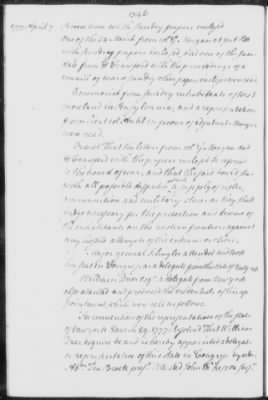 1777 April 7
with sundry papers inclosed
One of the 24 March from col G. Morgan at fort Pitt
with sundry papers inclosed, and one of the same
date from J. Crawford with the proceedings of a
council of war & sundry other papers inclosed were read.
A memorial from sundry inhabitants of West
moreland in Pensylvania, and a representation
from lieut col. in favour of adjutant
were read.
Ordered that the letters from col G. Morgan and
Crawford with the papers inclosed be referred
to the board of war, and that the said board
with all possible despatch a supply of rifles,
ammunition and military stores as they shall
judge necessary for the protection and defence of
the inhabitants on the western frontiers against
any hostile attempts of the indians or others.
Major general Schuyler attended and took
his seat in Congress as a delegate from the state of
William Duer esqr a delegate from New york
also attended and produced the credentials of his ap
pointment which were red as follows.
In convention of the representatives of the state
of New york March 29. 1777. Resolved That William
Duer esquire be and is hereby appointed a delegate
or representative of this state in Congress by order.
Abm Ten Broeck presdt. Attested John secy.